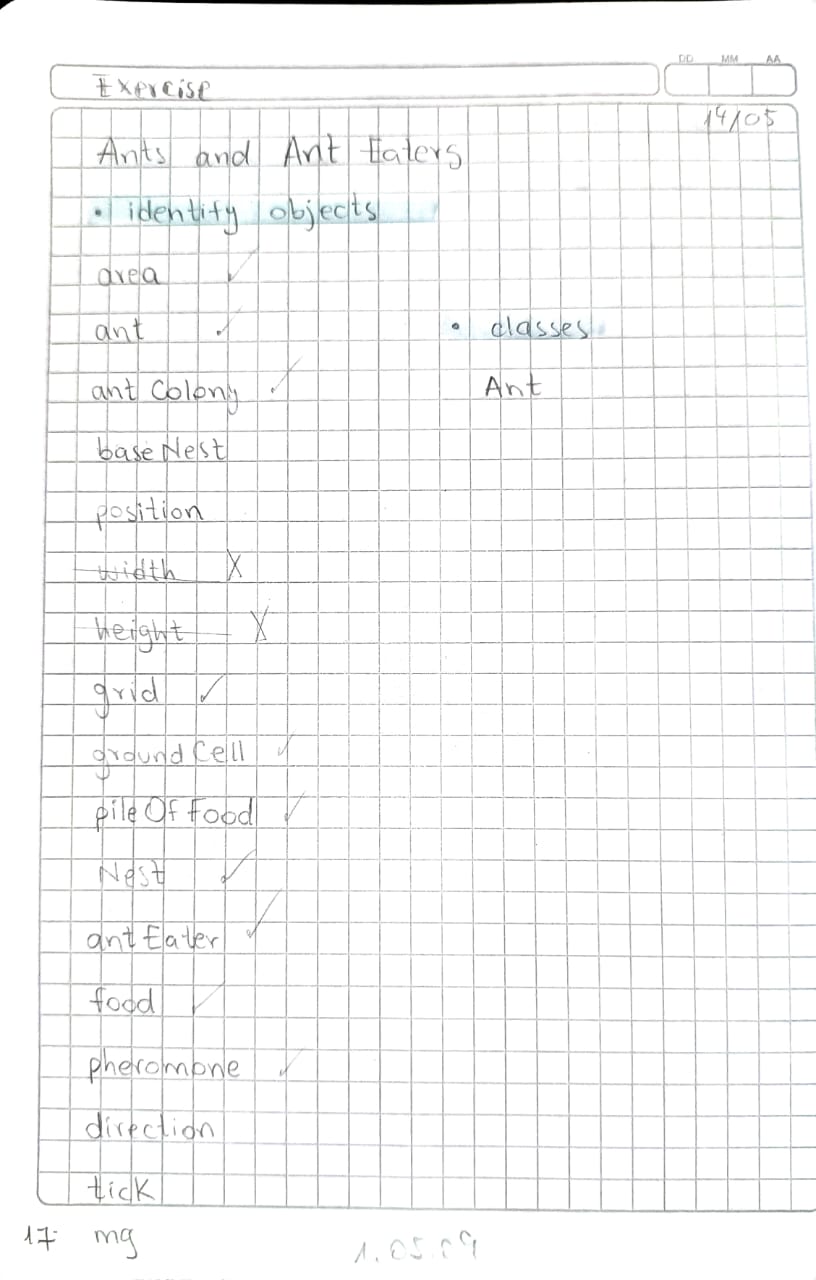 DD MM AA
Exercise
14/05
Ants and Ant Eaters
• identify objects
area ✓
ant ✓
• classes
ant Colony ✓
Ant
base Nest
position
width X
height X
grid ✓
ground Cell ✓
pile Of Food ✓
Nest ✓
ant Eater ✓
food ✓
pheromone ✓
direction
tick
17- mg